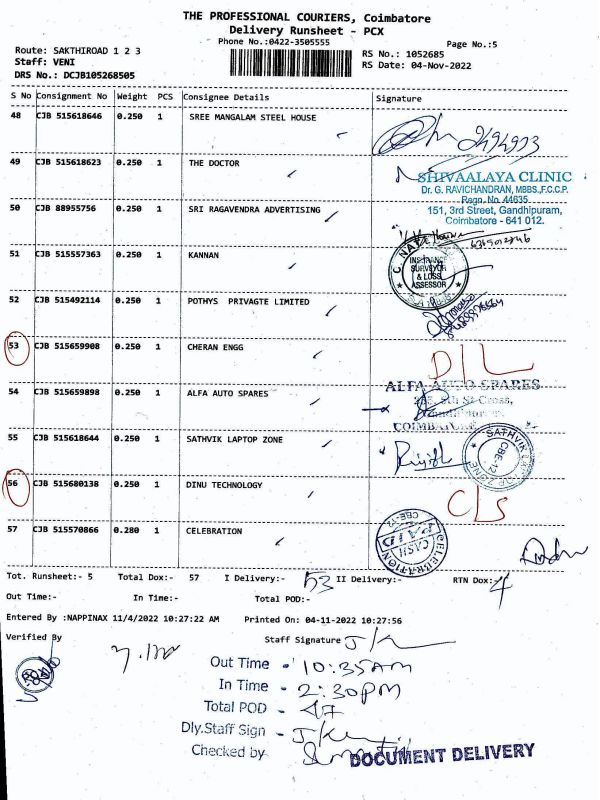 THE PROFESSIONAL COURIERS, Coimbatore
Delivery Runsheet - PCX
Phone No.:0422-3505555
Page No.:5
Route: SAKTHIROAD 1 2 3
RS No.: 1052685
Staff: VENI
RS Date: 04-Nov-2022
DRS No.: DCJB105268505
S No Consignment No Weight PCS Consignee Details Signature
48 CJB 515618646 0.250 1 SREE MANGALAM STEEL HOUSE
49 CJB 515618623 0.250 1 THE DOCTOR
SHIVAALAYA CLINIC
Dr. G. RAVICHANDRAN, MBBS.,F.C.C.P.
Regn. No. 44635
50 CJB 88955756 0.250 1 SRI RAGAVENDRA ADVERTISING
151, 3rd Street, Gandhipuram,
Coimbatore - 641 012.
51 CJB 515557363 0.250 1 KANNAN
INSURANCE
SURVEYOR
& LOSS
ASSESSOR
52 CJB 515492114 0.250 1 POTHYS PRIVAGTE LIMITED
53 CJB 515659908 0.250 1 CHERAN ENGG
D/L
54 CJB 515659898 0.250 1 ALFA AUTO SPARES
ALFA AUTO SPARES
Cross,
55 CJB 515618644 0.250 1 SATHVIK LAPTOP ZONE
SATHVIK LAPTOP ZONE
CBE-12
56 CJB 515680138 0.250 1 DINU TECHNOLOGY
C/S
57 CJB 515570866 0.280 1 CELEBRATION
CELEBRATION CBE-12
CASH
PAID
Tot. Runsheet:- 5 Total Dox:- 57 I Delivery:- 53 II Delivery:- RTN Dox:- 4
Out Time:- In Time:- Total POD:-
Entered By :NAPPINAX 11/4/2022 10:27:22 AM Printed On: 04-11-2022 10:27:56
Verified By Staff Signature
Out Time - 10:35AM
In Time - 2:30PM
Total POD - 47
Dly.Staff Sign -
Checked by
DOCUMENT DELIVERY